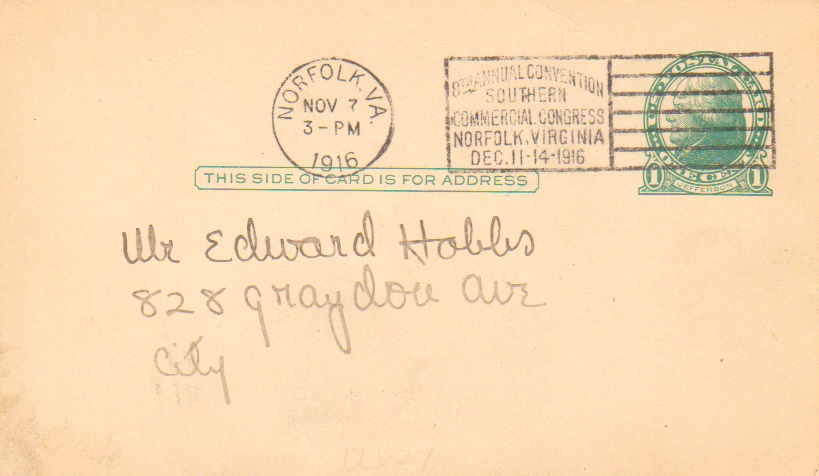 NORFOLK, VA.
NOV 7
3-PM
1916
8TH ANNUAL CONVENTION
SOUTHERN
COMMERCIAL CONGRESS
NORFOLK, VIRGINIA
DEC. 11-14-1916
U.S. POSTAL CARD
ONE CENT
1 JEFFERSON 1
THIS SIDE OF CARD IS FOR ADDRESS
Mr Edward Hobbs
828 Graydon Ave
City
UX27